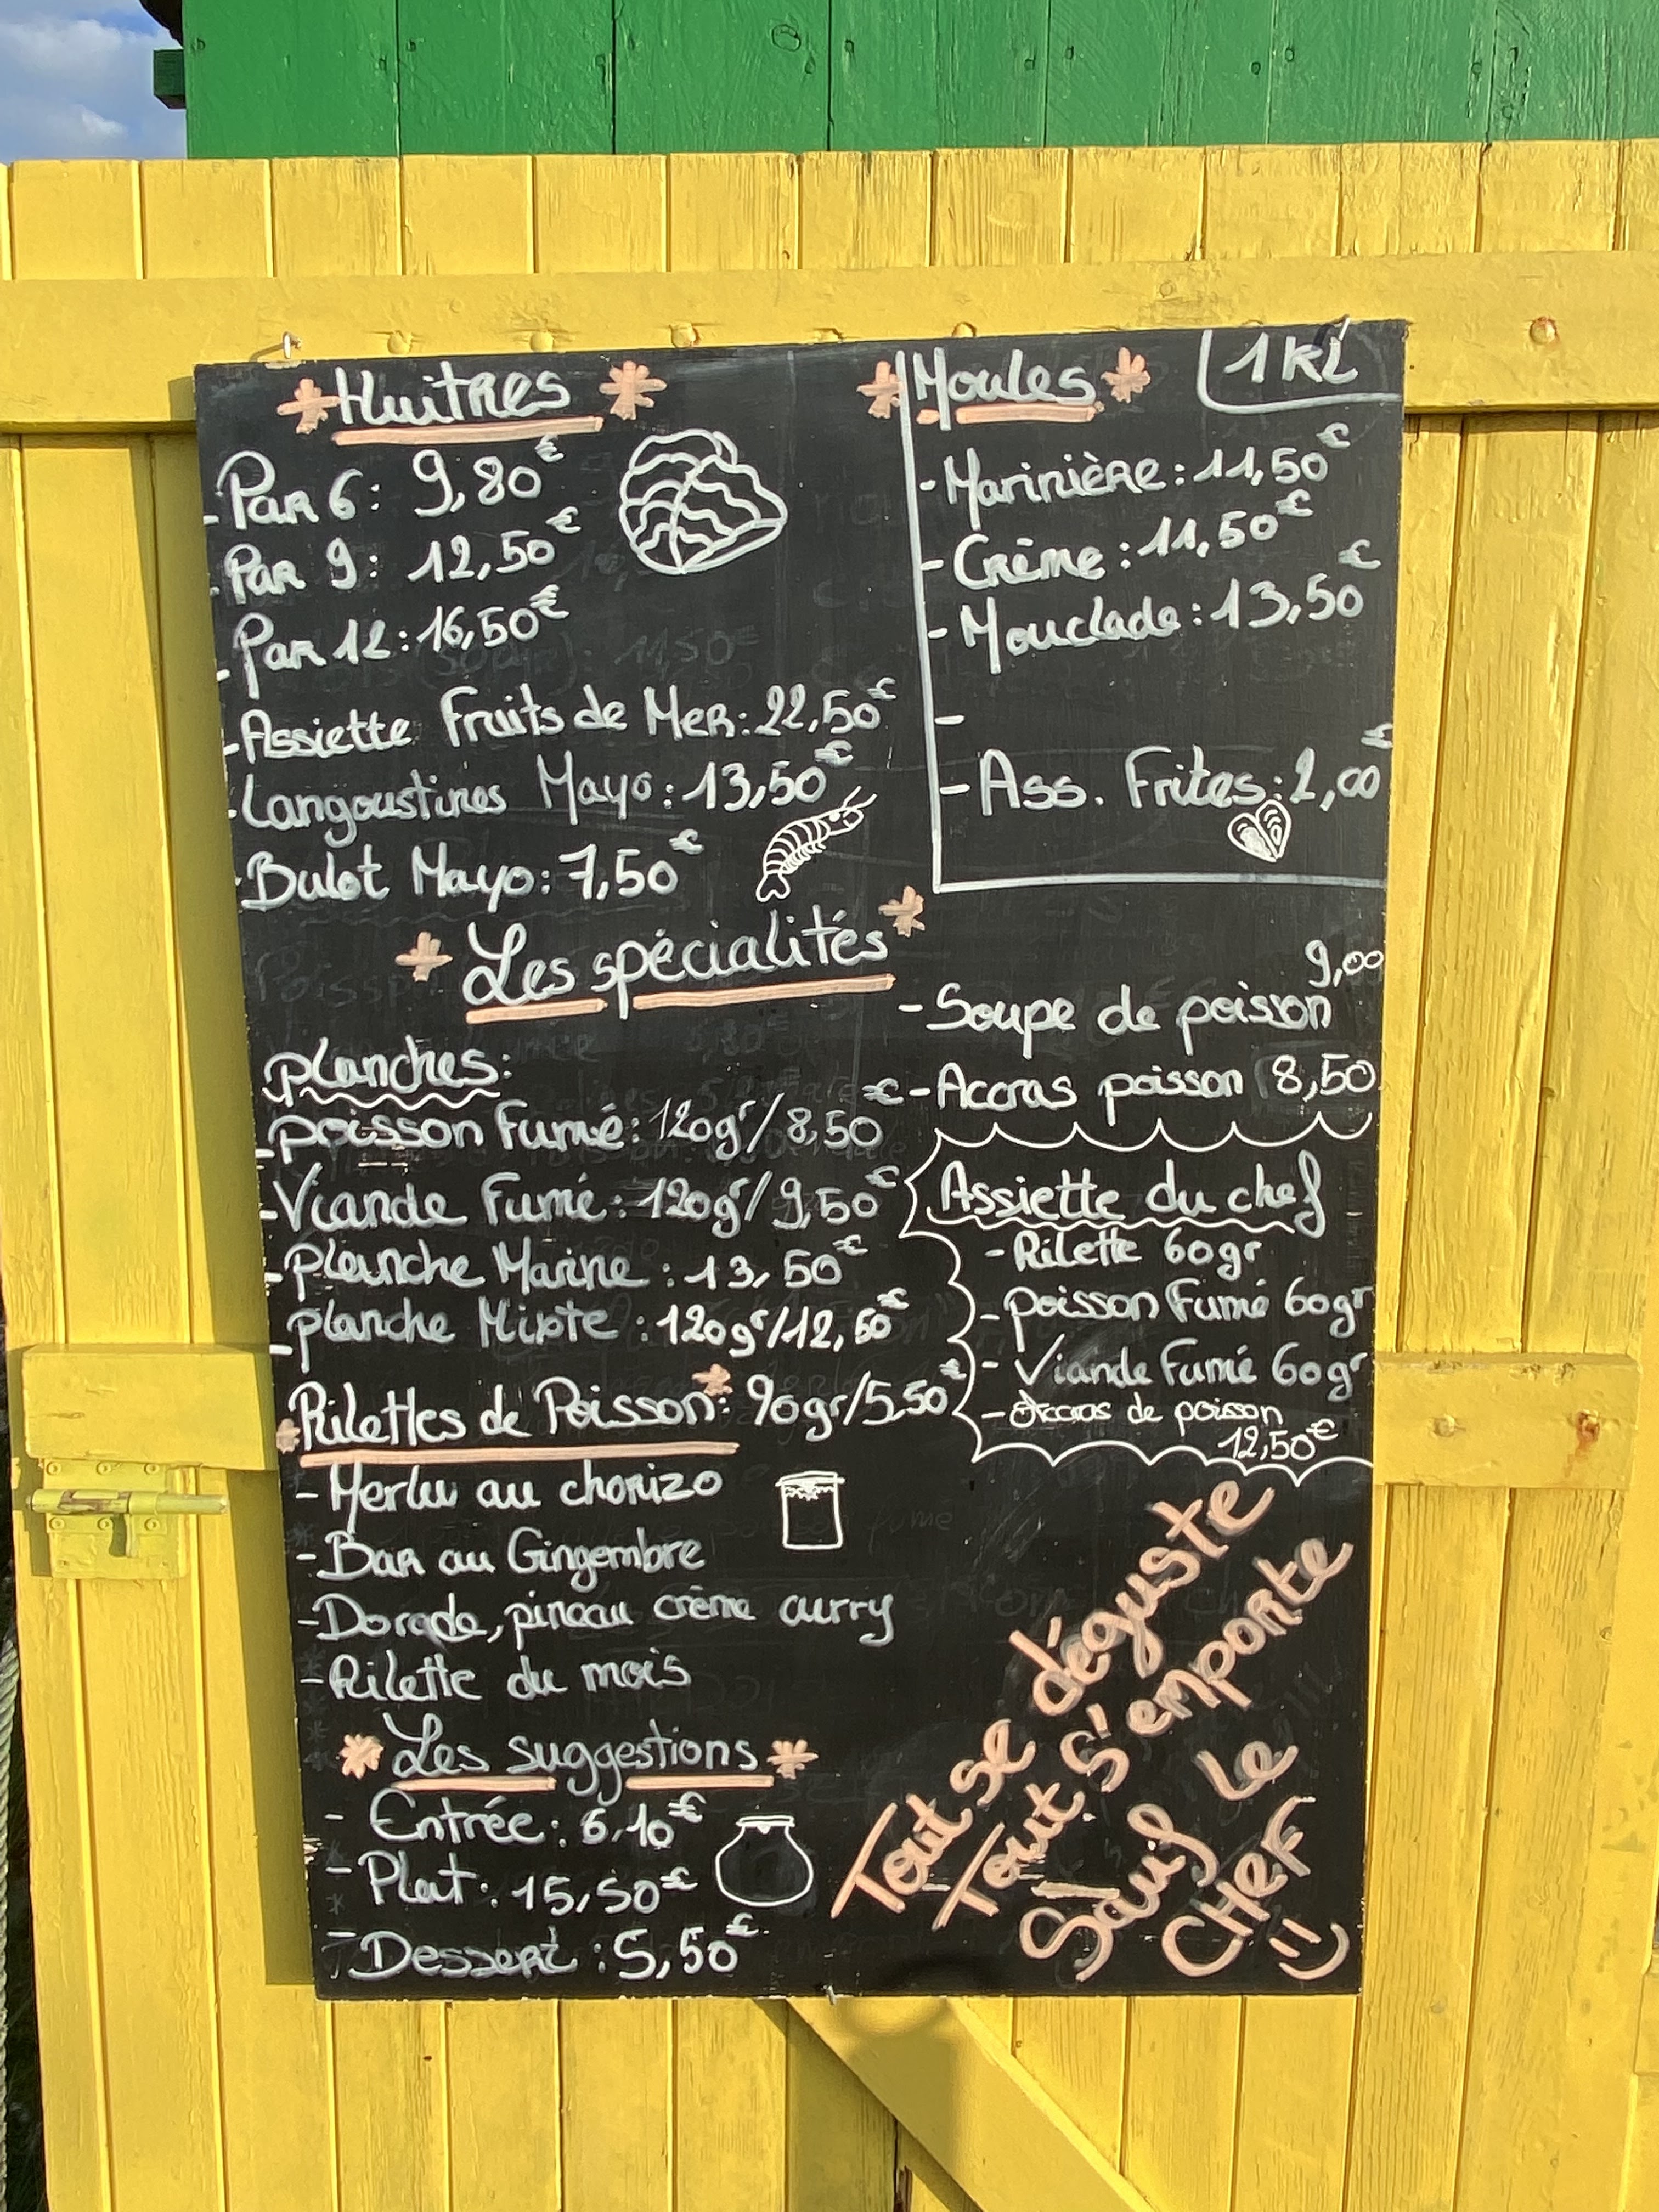 Huitres
- Par 6 : 9,80€
- Par 9 : 12,50€
- Par 12 : 16,50€
- Assiette Fruits de Mer : 22,50€
- Langoustines Mayo : 13,50€
- Bulot Mayo : 7,50€
Moules
1 KL
- Marinière : 11,50€
- Crème : 11,50€
- Mouclade : 13,50€
-
- Ass. Frites : 2,00€
Les spécialités
planches :
- poisson Fumé : 120gr/ 8,50€
- Viande Fumé : 120gr/ 9,50€
- planche Marine : 13,50€
- planche Mixte : 120gr/12,50€
Rilettes de Poisson : 90gr/5,50€
- Merlu au chorizo
- Bar au Gingembre
- Dorade, pineau crème curry
- Rilette du mois
9,00
- Soupe de poisson
- Accras poisson 8,50
Assiette du chef
- Rilette 60gr
- poisson Fumé 60gr
- Viande Fumé 60gr
- Accras de poisson
12,50€
Les suggestions
- Entrée : 6,10€
- Plat : 15,50€
- Dessert : 5,50€
Tout se déguste
Tout s'emporte
Sauf le
CHEF